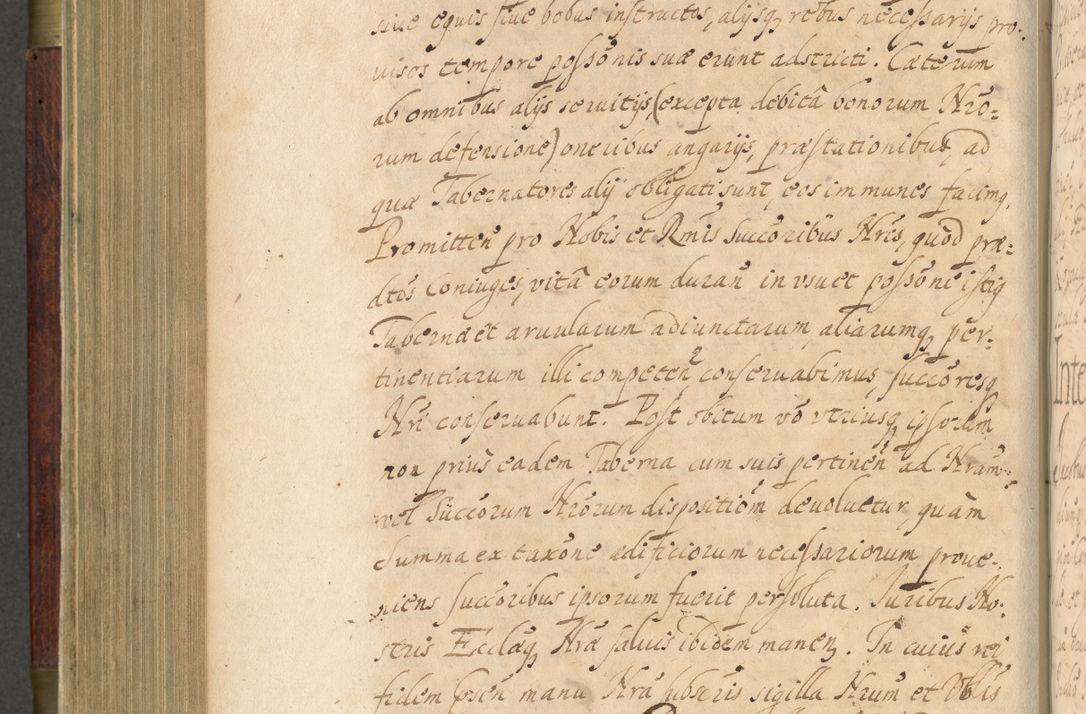 siue equis siue bobus instructos, alijsq, rebus necessarijs pro-
uisos tempore possõnis suæ erunt adstricti. Cæterum
ab omnibus alijs seruitijs, (excepta debitâ bonorum Nrõ=
rum defensione) oneribus angarijs, præstationibus, ad
quæ Tabernatores alij obligati sunt, eos immunes facimq.
Promitteñ pro Nobis et Rmis Succoribus Nris, quod præ=
dtos Coniuges, vitâ eorum durañ in vsu et possõne istiq
Tabernæ et aruularum adiunctarum, aliarumq, per-
tinentiarum illi competeñ conseruabimus, succoresq
Nri conseruabunt. Post obitum võ vtriusq, ipsorum
non prius eadem Taberna cum suis pertineñ ad Nram
vel Succorum Nrorum dispositiõm deuoluetur, quàm
Summa ex taxõne ædificiorum necessariorum proue-
niens succoribus ipsorum fuerit persoluta. Iuribus No-
stris Ecclæq, Nræ saluis ibidem maneñ. In cuius rei
fidem pseñ manu Nrâ subscris sigilla Nrum et Vblis